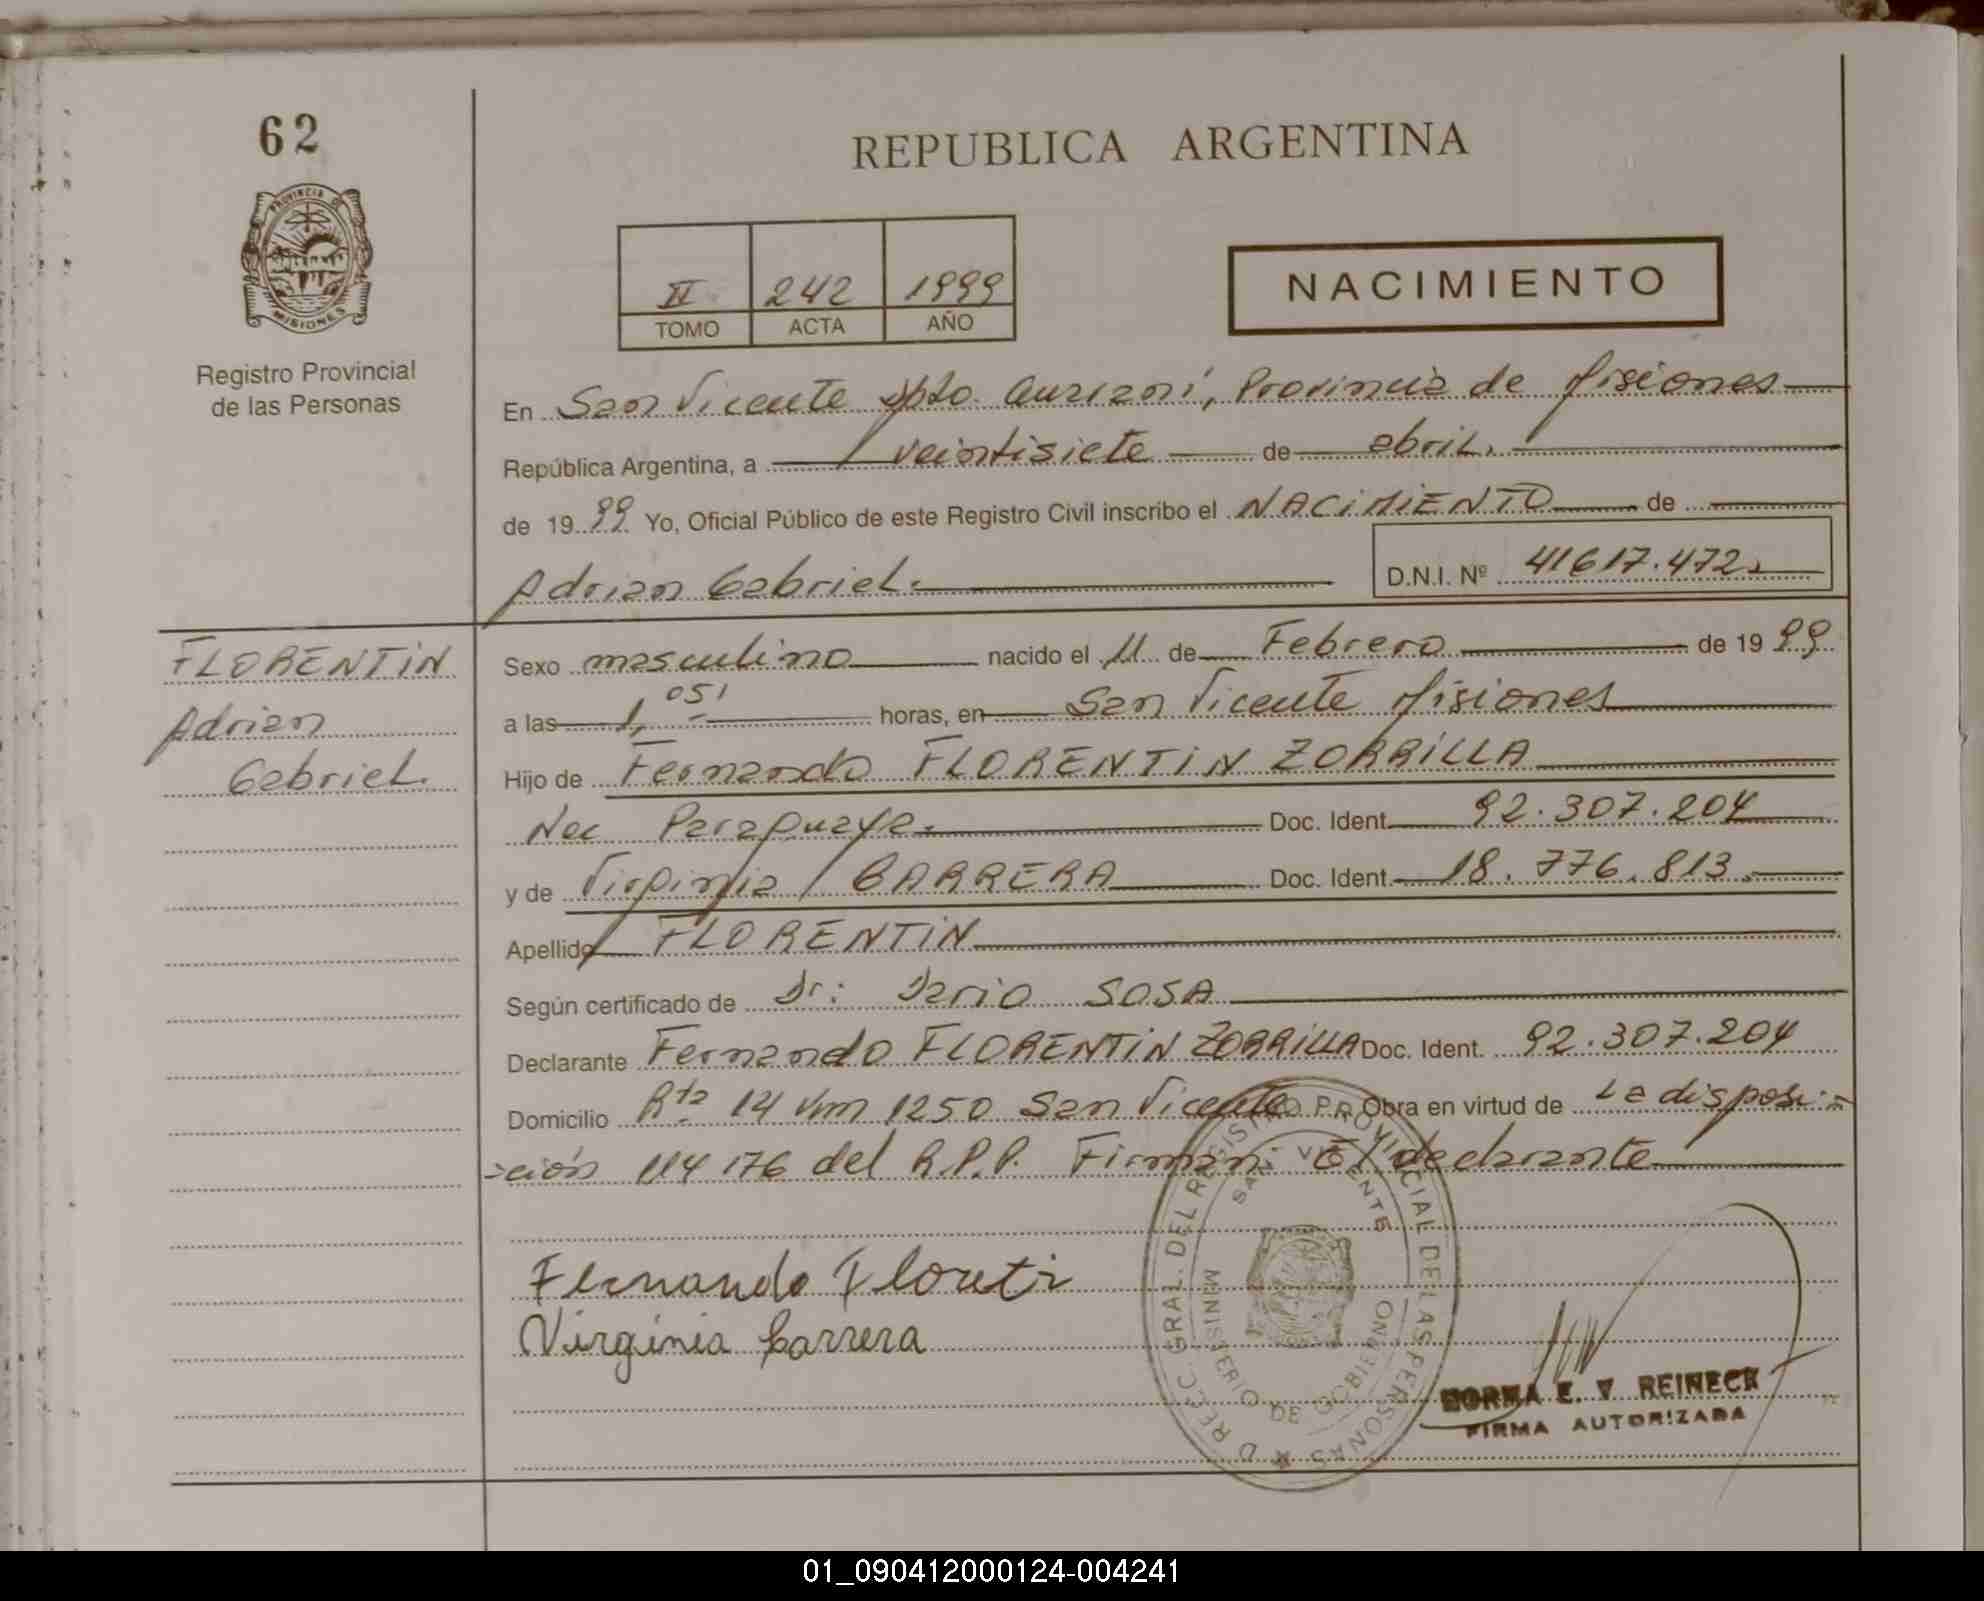 62
PROVINCIA DE
MISIONES
Registro Provincial
de las Personas
REPUBLICA ARGENTINA
II 242 1999
TOMO ACTA AÑO
NACIMIENTO
En San Vicente Dpto. Guaraní, Provincia de Misiones
República Argentina, a veintisiete de abril.
de 19 99 Yo, Oficial Público de este Registro Civil inscribo el NACIMIENTO de
Adrian Gabriel.
D.N.I. Nº 41617.472
FLORENTIN
Adrian
Gabriel.
Sexo masculino nacido el 11 de Febrero de 19 99
a las 1,05' horas, en San Vicente Misiones
Hijo de Fernando FLORENTIN ZORRILLA
Nac Paraguaya. Doc. Ident. 92.307.204
y de Virginia / BARRERA Doc. Ident. 18.776.813.
Apellido FLORENTIN
Según certificado de Dr: Dario SOSA
Declarante Fernando FLORENTIN ZORRILLA Doc. Ident. 92.307.204
Domicilio Rta 14 Km 1250 San Vicente Obra en virtud de La disposi-
-ción 114 176 del R.P.P. Firman: El declarante
Fernando Floreti
Virginia Barrera
DIREC. GRAL. DEL REGISTRO PROVINCIAL DE LAS PERSONAS
SAN VICENTE
MINISTERIO DE GOBIERNO
NORMA E. V. REINECK
FIRMA AUTORIZADA
01_090412000124-004241